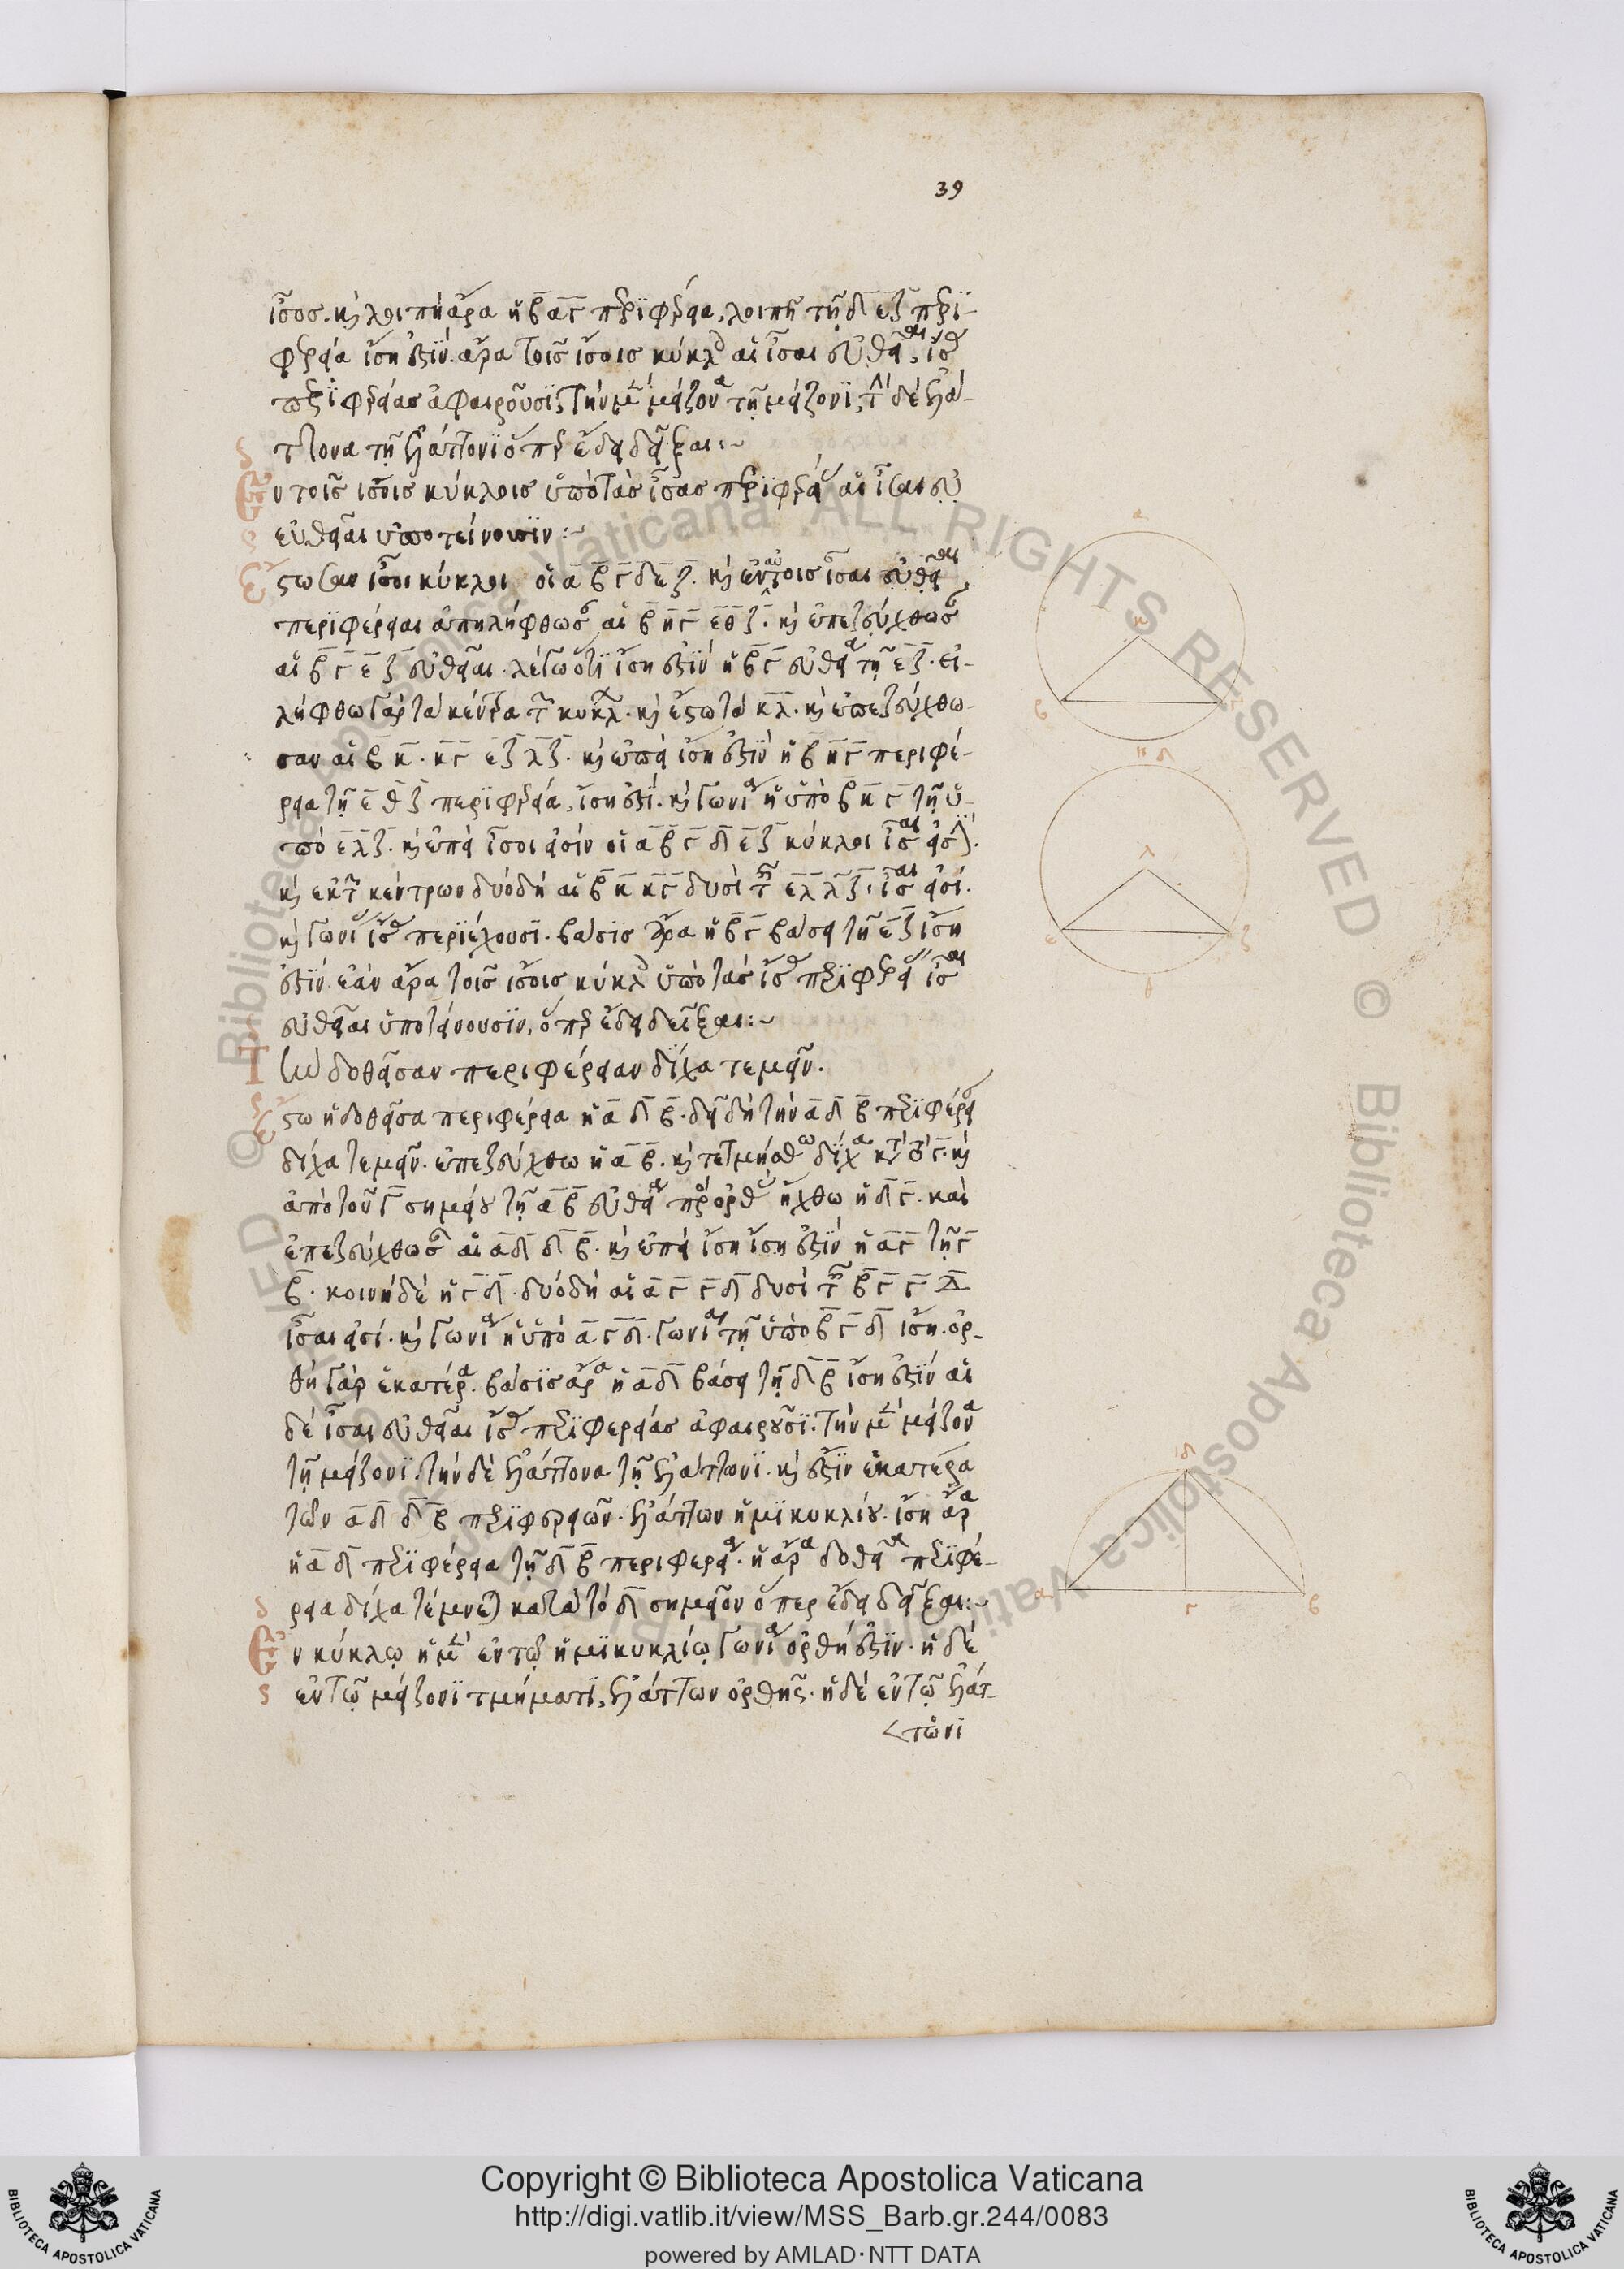 39
ἴσος. κὶ λοιπὴ ἄρα ἡ β α γ περιφέρεια, λοιπῇ τῇ δ εζ περι-
φερεία ἴση ἐστίν. ἄρα τοῖς ἴσοις κύκλ αἱ ἴσαι εὐθεῖαι, ἴσ
περιφερείας ἀφαιροῦσι, τὴν μὲν μείζονα τῇ μείζονι, τὴν δὲ ἐλά-
ττονα τῇ ἐλάττονι ὅπερ ἔδει δεῖξαι:~
Ἐν τοῖς ἴσοις κύκλοις ὑπὸ τὰς ἴσας περιφερείας αἱ ἴσαι εὐ
εὐθεῖαι ὑποτείνουσιν:~
Ἔστωσαν ἴσοι κύκλοι οἱ α β γ δ ε ζ. κὶ ἐν αὐτοῖς ἴσαι εὐθεῖαι,
περιφέρειαι ἀπειλήφθωσ αἱ β η γ ε θ ζ. κὶ ἐπεζεύχθωσ
αἱ β γ ε ζ εὐθεῖαι. λέγω ὅτι ἴση ἐστὶν ἡ β γ εὐθεῖα τῇ ε ζ. εἰ-
λήφθω γὰρ τὰ κέντρα τῶν κύκλ. κὶ ἔστω τὰ κ λ. κὶ ἐπεζεύχθω-
σαν αἱ β κ. κ γ ε ζ λ ζ. κὶ ἐπεὶ ἴση ἐστὶν ἡ β η γ περιφέ-
ρεια τῇ ε θ ζ περιφερεία, ἴση ἐστί. κὶ γωνία ἡ ὑπὸ β κ γ τῇ ὑ-
πὸ ε λ ζ. κὶ ἐπεὶ ἴσοι εἰσὶν οἱ α β γ δ ε ζ κύκλοι ἴσαι εἰσὶ.
κὶ ἐκ τῶν κέντρων δύο δὴ αἱ β κ κ γ δυσὶ ταῖς ε λ λ ζ. ἴσαι εἰσί.
κὶ γωνίας ἴσας περιέχουσι. βάσις ἄρα ἡ β γ βάσει τῇ ε ζ ἴση
ἐστίν. ἐὰν ἄρα τοῖς ἴσοις κύκλ ὑπὸ τὰς ἴσ περιφερείας ἴσαι
εὐθεῖαι ὑποτείνουσιν, ὅπερ ἔδει δεῖξαι:~
Τὴν δοθεῖσαν περιφέρειαν δίχα τεμεῖν.
Ἔστω ἡ δοθεῖσα περιφέρεια ἡ α δ β. δεῖ δὴ τὴν α δ β περιφέρειαν
δίχα τεμεῖν. ἐπεζεύχθω ἡ α β. κὶ τετμήσθω δίχα κατὰ τὸ γ. κὶ
ἀπὸ τοῦ γ σημείου τῇ α β εὐθεία πρὸς ὀρθὰς ἤχθω ἡ δ γ. καὶ
ἐπεζεύχθωσ αἱ α δ δ β. κὶ ἐπεὶ ἴση ἴση ἐστὶν ἡ α γ τῇ γ
β. κοινὴ δὲ ἡ γ δ. δύο δὴ αἱ α γ γ δ δυσὶ ταῖς β γ γ δ
ἴσαι εἰσί. κὶ γωνία ἡ ὑπὸ α γ δ. γωνία τῇ ὑπὸ β γ δ ἴση. ὀρ-
θὴ γὰρ ἑκατέρα. βάσις ἄρα ἡ α δ βάσει τῇ δ β ἴση ἐστίν αἱ
δὲ ἴσαι εὐθεῖαι ἴσ περιφερείας ἀφαιροῦσι. τὴν μὲν μείζονα
τῇ μείζονι. τὴν δὲ ἐλάττονα τῇ ἐλάττονι. κὶ ἔστιν ἑκατέρα
τῶν α δ δ β περιφερειῶν. ἐλάττων ἡμικυκλίου. ἴση ἄρα
ἡ α δ περιφέρεια τῇ δ β περιφερεία. ἡ ἄρα δοθεῖσα περιφέ-
ρεια δίχα τέμνεται κατὰ τὸ δ σημεῖον ὅπερ ἔδει δεῖξαι:~
Ἐν κύκλῳ ἡ μὲν ἐν τῷ ἡμικυκλίῳ γωνία ὀρθή ἐστιν. ἡ δὲ
ἐν τῷ μείζονι τμήματι, ἐλάττων ὀρθῆς. ἡ δὲ ἐν τῷ ἐλάτ-
τονι
α
κ
β
η δ
λ
ε ζ
θ
δ
α γ β
Copyright © Biblioteca Apostolica Vaticana
http://digi.vatlib.it/view/MSS_Barb.gr.244/0083
powered by AMLAD·NTT DATA
BIBLIOTECA APOSTOLICA VATICANA
BIBLIOTECA APOSTOLICA VATICANA